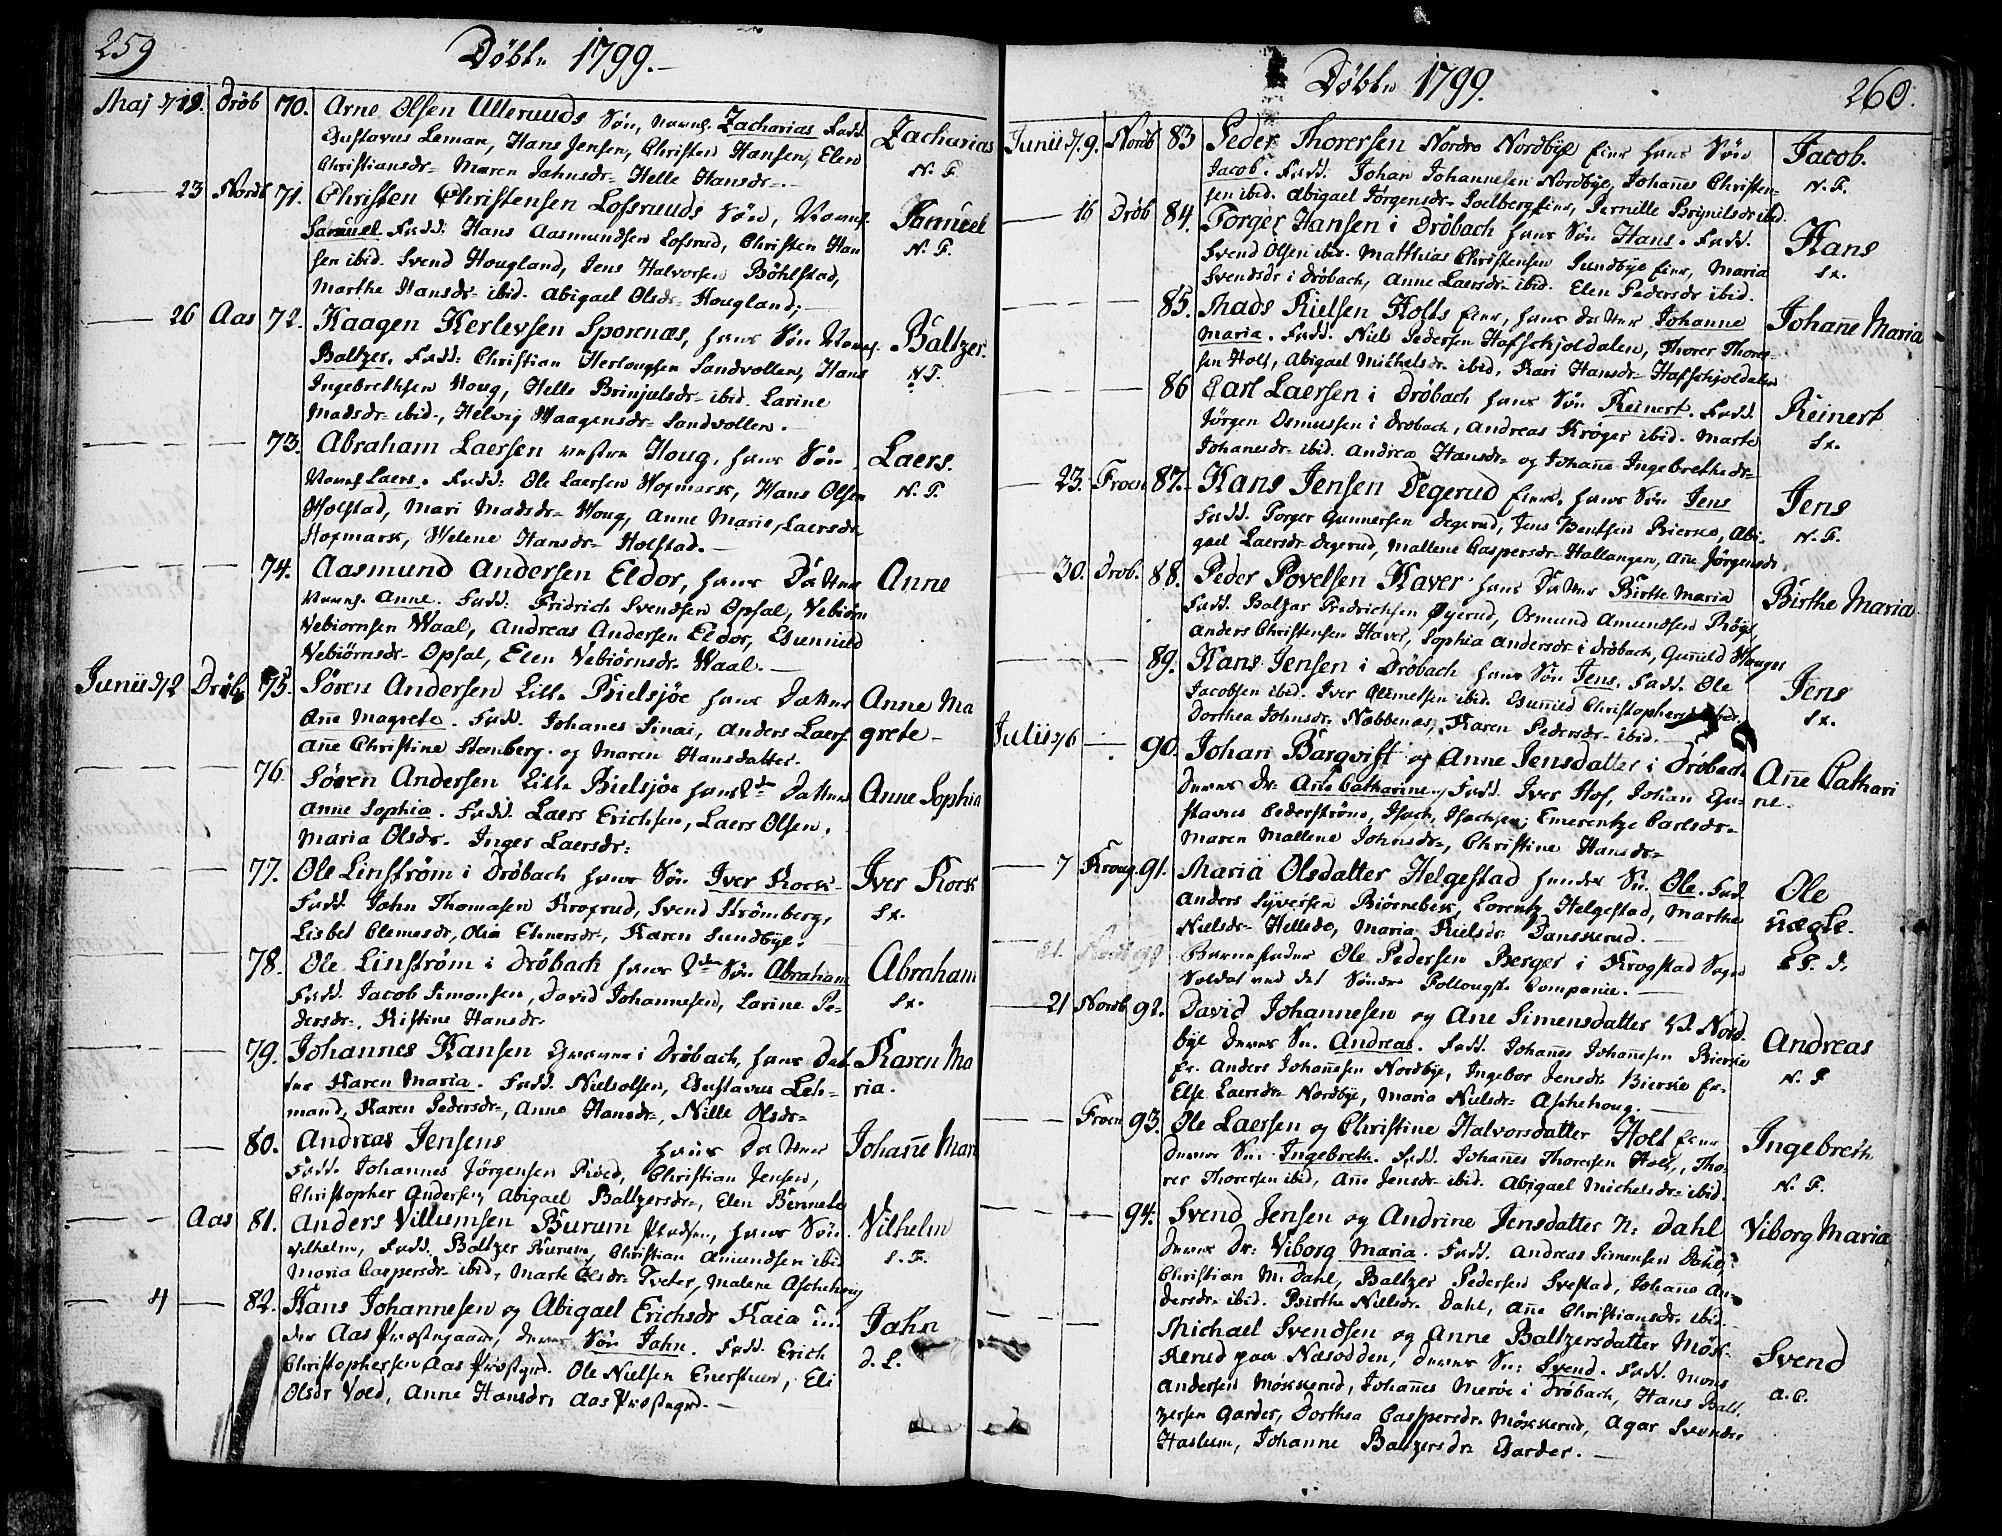 259
Döbte 1799.
Maj d/19. Dröb 70. Arne Olsen Ulleruuds Sön, navnl. Zacharias Fadd.
Gustavus Leman, Hans Jensen, Christen Hansen, Elen
Christiansdr- Maren Jahnsdr- Helle Hansdr-.
Zacharias
N. F.
23 Nordb 71. Christen Christensen Lofsruuds Sön, Navnl.
Samuel Fadd: Hans Aasmundsen Lofsrud, Christen Han
sen ibid. Svend Hougland, Jens Halvorsen Böhlstad,
Marthe Hansdr- ibid. Abigael Olsdr- Hougland;
Samuel
N. F.
26 Aas 72. Haagen Herlevsen Sporenæs, hans Sön Navnl.
Baltzer. Fadd: Christian Herlougsen Sandvollen, Hans
Ingebrethsen Houg, Helle Brinjulsdr- ibid. Larine
Madsdr- ibid., Helvig Haagensdr- Sandvollen.
Baltzer.
N F.
73. Abraham Laersen vestre Houg, hans Sön
Navnl Laers. Fadd: Ole Laersen Hofmark, Hans Olsen
Holstad, Mari Madsdr- Houg, Anne Marie Laersdr-
Hofmark, Helene Hansdr- Holstad.
Laers.
N. F.
74. Aasmund Andersen Eldor, hans Datter
Navnl. Anne. Fadd: Fridrich Svendsen Opsal, Vebiörn
Vebiornsen Waal, Andreas Andersen Eldor, Gunnild
Vebiörnsdr- Opsal, Elen Vebiörnsdr- Waal.
Anne
Junii d/2 Dröb 75. Sören Andersen Lille Bielsjöe hans Datter
Añe Magrete. Fadd. Johanes Sinai, Anders Laers
Añe Christine Steenberg. og Maren Hansdatter.
Anne Ma
grete
76. Sören Andersen Lille Bielsjöe hans 2den Datter
Anne Sophia. Fadd. Laers Erichsen, Laers Olsen,
Maria Olsdr. Inger Laersdr:
Anne Sophia
77. Ole Linström i Dröbach hans Sön Iver Kock
Fadd. John Thomasen Kroxrud, Svend Strömberg,
Lisbet Clemesdr, Olia Elmersdr-, Karen Sundbye.
Iver Kock
Sx.
78. Ole Linström i Dröbach hans 2den Sön Abraham
Fadd. Jacob Simonsen, David Johannesen, Larine Pe-
dersdr-, Kistine Hansdr-
Abraham
Sx.
79. Johannes Hansen Graver i Dröbach, hans Dat
ter Karen Maria. Fadd. Niels Olsen, Gustavus Leh-
mand, Karen Pedersdr-, Anne Hansdr-, Nille Olsdr-
Karen Ma
ria.
80. Andreas Jensens hans Datter
Fadd. Johannes Jörgensen Röed, Christian Jensen,
Christopher Andersen, Abigael Baltzersdr-, Elen
Johañe Mari
Aas 81. Anders Villumsen Burum Pladsen, hans Sön.
Vilhelm, Fadd. Baltzer Burum, Christian Amundsen ibid
Maria Caspersdr- ibid, Marte Olsdr- Tveter, Malene Aschehoug
Vilhelm
S. F.
4 82. Hans Johannesen og Abigael Erichsdr Kaia un
der Aas Præstegaard, deres Sön Jahn. Fadd. Erich
Christophersen Aas Præstgrd. Ole Nielsen Enerstuen, Eli
Olsdr Voed, Anne Hansdr, Aas Præstegrd.
Jahn
d. L.
Döbte 1799. 260.
Junii d/9. Nordb 83 Peder Thorersen Nordre Nordbye Eier hans Sön
Jacob. Fadd. Johan Johannesen Nordbye, Johañes Christen-
sen ibid. Abigael Jörgensdr- Soelberg Eier, Pernille Brynilsdr ibid.
Jacob.
N. F.
16 Dröb 84. Torger Hansen i Dröbach hans Sön Hans. Fadd.
Svend Olsen ibid. Matthias Christensen Sundbye Eier, Maria
Svendsdr i Dröbach, Anne Laersdr- ibid. Elen Pedersdr ibid.
Hans
Sx.
85. Mads Nielsen Holts Eier, hans datter Johanne
Maria. Fadd. Niels Pedersen Hafschjoldalen, Thorer Thorer-
sen Holt, Abigael Michelsdr- ibid. Kari Hansdr- Hafschjoldalen
Johañe Maria
86 Carl Laersen i Dröbach hans Sön Reinert. Fadd.
Jörgen Osmussen i Drobach, Andreas Kröger ibid. Marte
Johanesdr- ibid. Andrea Hansdr- og Johañe Ingebrethsdr-
Reinert
Sx.
23. Froen 87. Hans Jensen Degerud Eier, hans Sön Jens
Fadd. Torger Gunnersen Degerud, Jens Bentsen Bierke, Abi-
gael Laersdr Degerud, Mallene Caspersdr- Hallangen, Añe Jörgensdr
Jens
N. F.
30. Drob. 88. Peder Povelsen Haver hans Datter Birthe Maria
Fadd. Baltzar Fredrichsen Öyerud, Osmund Amundsen Röge,
Anders Christensen Haver, Sophia Andersdr i Dröbach, Guñild Houger
Birthe Maria
89. Hans Jensen i Dröbach hans Sön Jens. Fadd. Ole
Jacobsen ibid. Iver Clemetsen ibid. Guñild Christophersdr ibid.
Dorthea Johnsdr. Næbbenæs, Karen Pedersdr- ibid.
Jens
Sx.
Julii d/6 90. Johan Bargvist og Anne Jensdatter i Dröbach
deres Dr: Añe Catharine. Fadd. Iver Hof, Johan Gu-
stavus Cederström, Isach Isachsen, Emerentze Carlsdr-
Maren Mallene Johnsdr-, Christine Hansdr-
Añe Cathari
ne.
7 Kroug 91. Maria Olsdatter Helgestad hendes Sn. Ole. Fad.
Anders Syversen Biörnebek, Lorentz Helgestad, Marthe
Nielsdr- Hellsdo, Maria Nielsdr Danskerud.
Barnefader Ole Pedersen Berger i Krogstad Sogn
Soldat ved det Söndre Follougske Compagnie.
Ole
uægte.
21 Nordb 92. David Johannesen og Ane Simensdatter Nord-
bye deres Sn. Andreas. Fadd. Johañes Johañesen Bierke
Er. Anders Johañesen Nordbye, Ingebor Jensdr Bierke Er-
Else Laersdr Nordbye, Maria Nielsdr- Aschehoug.
Andreas
N. F
Froen 93. Ole Laersen og Christine Halvorsdatter Holt Eier
deres Sn. Ingebreth. Fadd. Johañes Thorersen Holt, Tho-
rer Thorersen ibid, Añe Jensdr- ibid. Abigael Michelsdr- ibid.
Ingebreth
N. F.
94. Svend Jensen og Andrine Jensdatter N: Dahl
deres Dr: Viborg Maria. Fadd. Andreas Simensen Dahl
Christian M: Dahl, Baltzer Pedersen Svestad, Johane An-
dersdr- ibid. Birthe Nielsdr- Dahl, Añe Christiansdr- ibid.
Viborg Maria
Michael Svendsen og Anne Baltzersdatter Mösk-
kerud paa Næsodden, deres Sn: Svend. Fadd. Mons
Andersen Möskkerud, Johañes Meröe i Dröbach, Hans Balt-
zersen Garder, Dorthea Caspersdr- Möskkerud, Agar Svendsdr
Haslum, Johanne Baltzersdr Garder.
Svend
A. C.